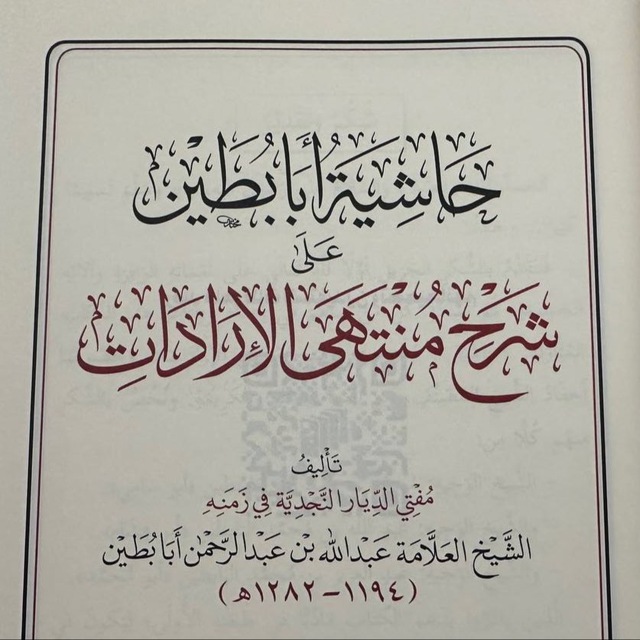 حَاشِيَة أَبَا بُطَيْن
عَلَىٰ
شَرْح مُنْتَهَى الإِرَادَاتِ
تَأْلِيفُ
مُفْتِي الدِّيَارِ النَّجْدِيَّةِ فِي زَمَنِهِ
الشَّيْخ العَلَّامَة عَبْدِ اللهِ بْنِ عَبْدِ الرَّحْمٰنِ أَبَا بُطَيْن
(١١٩٤-١٢٨٢هـ)